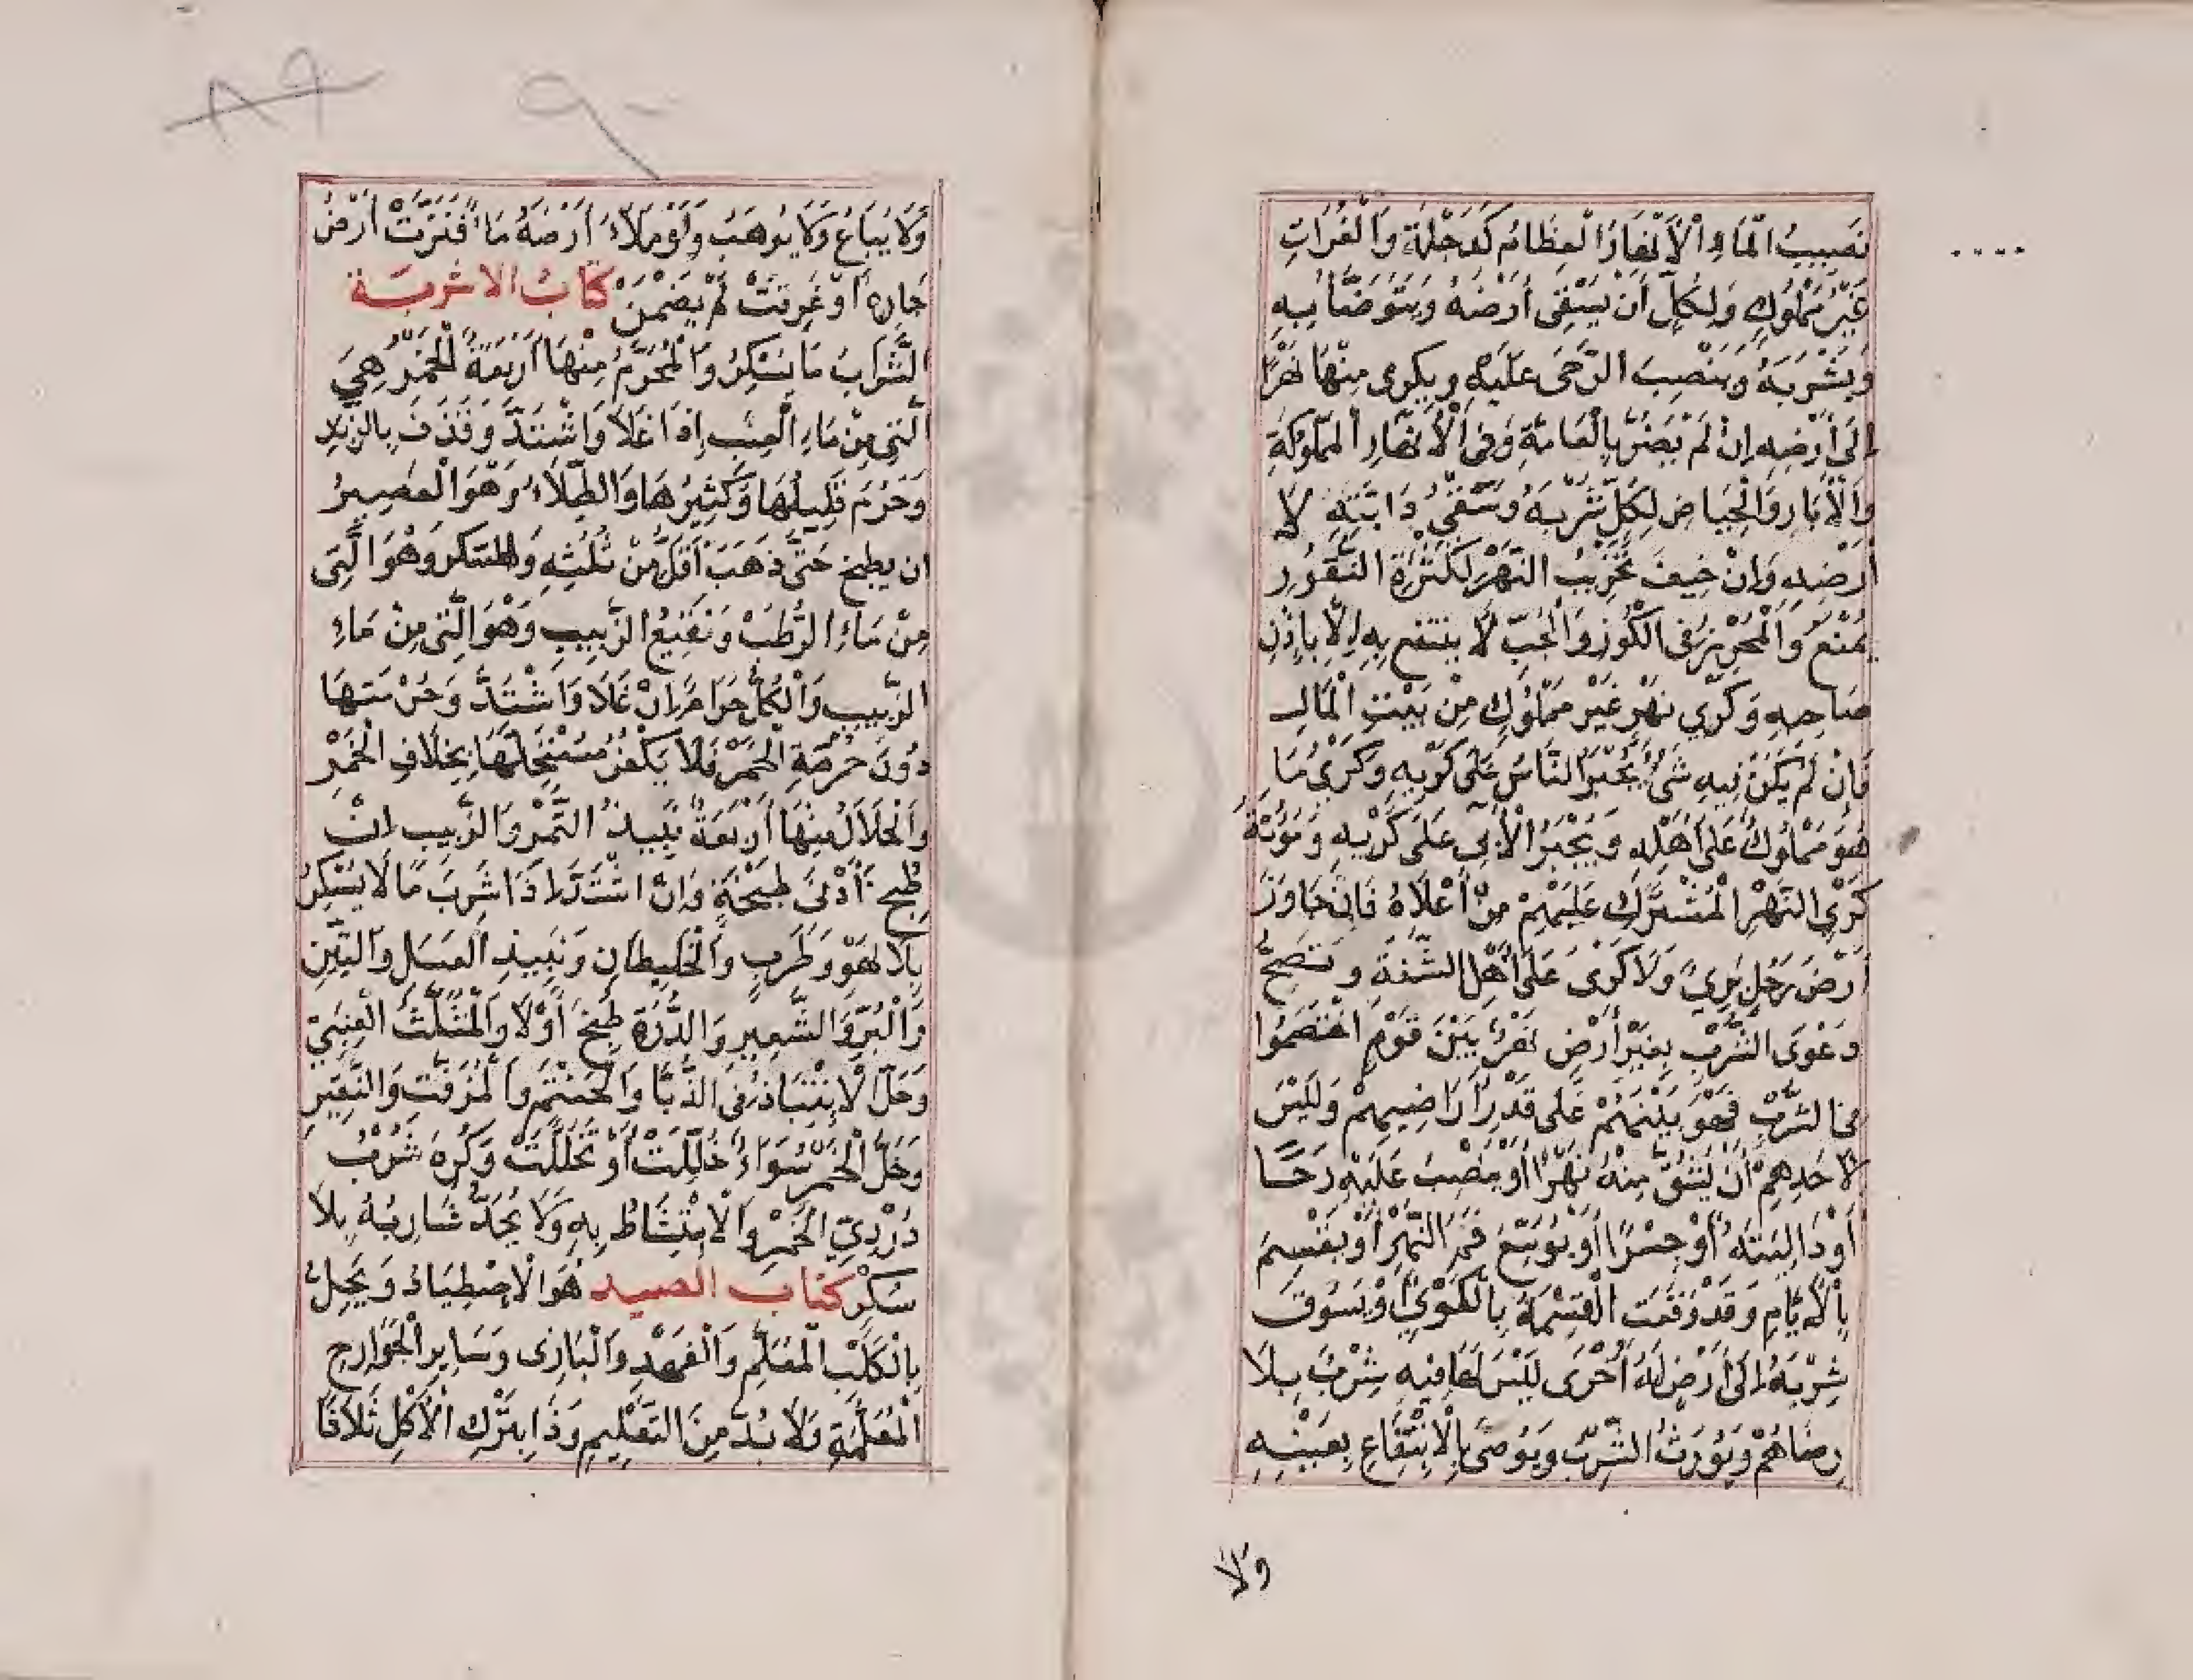 نَصِيبُ الْمَاءِ الْأَنْهَارُ الْعِظَامُ كَدِجْلَةَ وَالْفُرَاتِ
غَيْرُ مَمْلُوكٍ وَلِكُلٍّ أَنْ يَسْقِىَ أَرْضَهُ وَيَتَوَضَّأُ بِهِ
وَيَشْرَبَهُ وَيَنْصِبَ الرَّحَى عَلَيْهِ وَيكْرِى مِنْهَا نَهْرًا
إِلَى أَرْضِهِ إِنْ لَمْ يَضُرَّ بِالْعَامَّةِ وَفِى الْأَنْهَارِ الْمَمْلُوكَةِ
وَالْآبَارِ وَالْحِيَاضِ لِكُلٍّ شُرْبُهُ وَسَقْىُ دَابَّتِهِ لَا
أَرْضِهِ وَإِنْ خِيفَ تَخْرِيبُ النَّهْرِ لِكَثْرَةِ الْبُقُورِ
يُمْنَعُ وَالْمُحْرَزُ فِى الْكُوزِ وَالْجُبِّ لَا يُنْتَفَعُ بِهِ إِلَّا بِإِذْنِ
صَاحِبِهِ وَكَرْيُ نَهْرٍ غَيْرِ مَمْلُوكٍ مِنْ بَيْتِ الْمَالِ
فَإِنْ لَمْ يَكُنْ فِيهِ شَىْءٌ يُجْبَرُ النَّاسُ عَلَى كَرْيِهِ وَكَرْىُ مَا
هُوَ مَمْلُوكٌ عَلَى أَهْلِهِ وَيُجْبَرُ الْآبِى عَلَى كَرْيِهِ وَمُؤْنَةُ
كَرْيِ النَّهْرِ الْمُشْتَرَكِ عَلَيْهِمْ مِنْ أَعْلَاهُ فَإِنْ جَاوَزَ
أَرْضَ رَجُلٍ بَرِئَ وَلَا كَرْىَ عَلَى أَهْلِ الشَّفَةِ وَتَصِحُّ
دَعْوَى الشِّرْبِ بِغَيْرِ أَرْضٍ نَهْرٌ بَيْنَ قَوْمٍ اخْتَصَمُوا
فى الشِّرْبِ فَهُوَ بَيْنَهُمْ عَلَى قَدْرِ أَرَاضِيهِمْ وَلَيْسَ
لِأَحَدِهِمْ أَنْ يَشُقَّ مِنْهُ نَهْرًا أَوْ يَنْصِبَ عَلَيْهِ رَحًا
أَوْ دَالِيَتَهُ أَوْ جِسْرًا أَوْ يُوَسِّعَ فَمَ النَّهْرِ أَوْ يَقْسِمَ
بِالْأَيَّامِ وَقَدْ وَقَعَتِ الْقِسْمَةُ بِالْكُوَى أَوْ يَسُوقَ
شِرْبَهُ إِلَى أَرْضٍ لَهُ أُخْرَى لَيْسَ لَهَا فِيهِ شِرْبٌ بِلَا
رِضَاهُمْ وَيُوَرَثُ الشِّرْبُ وَيُوصَى بِالْاِنْتِفَاعِ بِعَيْنِهِ
ولا
٨٩ ٩٠
وَلَا يُبَاعُ وَلَا يُوهَبُ وَلَوْ مَلَاءَ أَرْضَهُ مَاءً فَنَزَّتْ أَرْضُ
جَارِهِ أَوْ غَرِقَتْ لَمْ يَضْمَنْ كتابُ الاشربَة
الشَّرَابُ مَا يُسْكِرُ وَالْمُحَرَّمُ مِنْهَا أَرْبَعَةٌ الْخَمْرُ هِيَ
الَّتِى مِنْ مَاءِ الْعِنَبِ إِذَا غَلَا وَاشْتَدَّ وَقَذَفَ بِالزَّبَدِ
وَحَرُمَ قَلِيلُهَا وَكَثِيرُهَا وَالطِّلَاءُ وَهُوَ الْعَصِيرُ
ان يطبخ حَتَّى ذَهَبَ أَقَلُّ مِنْ ثُلُثِهِ وَالمسكر وَهُوَ الَّتِى
مِنْ مَاءِ الرُّطَبِ وَنَقِيعُ الزَّبِيبِ وَهُوَ الَّتِى مِنْ مَاءِ
الزَّبِيبِ وَالْكُلُّ حَرَامٌ إِنْ غَلَا وَاشْتَدَّ وَحُرْمَتُهَا
دُونَ حُرْمَةِ الْخَمْرِ فَلَا يَكْفُرُ مُسْتَحِلُّهَا بِخِلَافِ الْخَمْرِ
وَالْحَلَالُ مِنْهَا أَرْبَعَةٌ نَبِيذُ التَّمْرِ وَالزَّبِيبِ إِنْ
طُبِخَ أَدْنَى طَبْخَةٍ وَإِنْ اشْتَدَّ إذَا شَرِبَ مَا لَا يُسْكِرُ
بِلَا لَهْوٍ وَطَرَبٍ وَالْخَلِيطَانِ وَنَبِيذِ الْعَسَلِ وَالتِّينِ
وَالْبُرِّ وَالشَّعِيرِ وَالذُّرَةِ طُبِخَ أَوْ لَا وَالْمُثَلَّثُ الْعِنَبِيُّ
وَحَلَّ الْاِنْتِبَاذُ فِى الدُّبَّا وَالْحَنْتَمِ وَالْمُزَفَّتِ وَالنَّقِيرِ
وَخَلُّ الْخَمْرِ سَوَاءٌ خُلِّلَتْ أَوْ تَخَلَّلَتْ وَكُرِهَ شُرْبُ
دُرْدِيِّ الْخَمْرِ وَالْاِمْتِشَاطُ بِهِ وَلَا يُحَدُّ شَارِبُهُ بِلَا
سُكْرٍ كتابُ الصيد هُوَ الْاِصْطِيَادُ وَيَحِلُّ
بِالْكَلْبِ الْمُعَلَّمِ وَالْفَهْدِ وَالْبَازِى وَسَايِرِ الْجَوَارِحِ
الْمُعَلَّمَةِ وَلَا بُدَّ مِنَ التَّعْلِيمِ وَذَا بِتَرْكِ الْأَكْلِ ثَلَاثًا